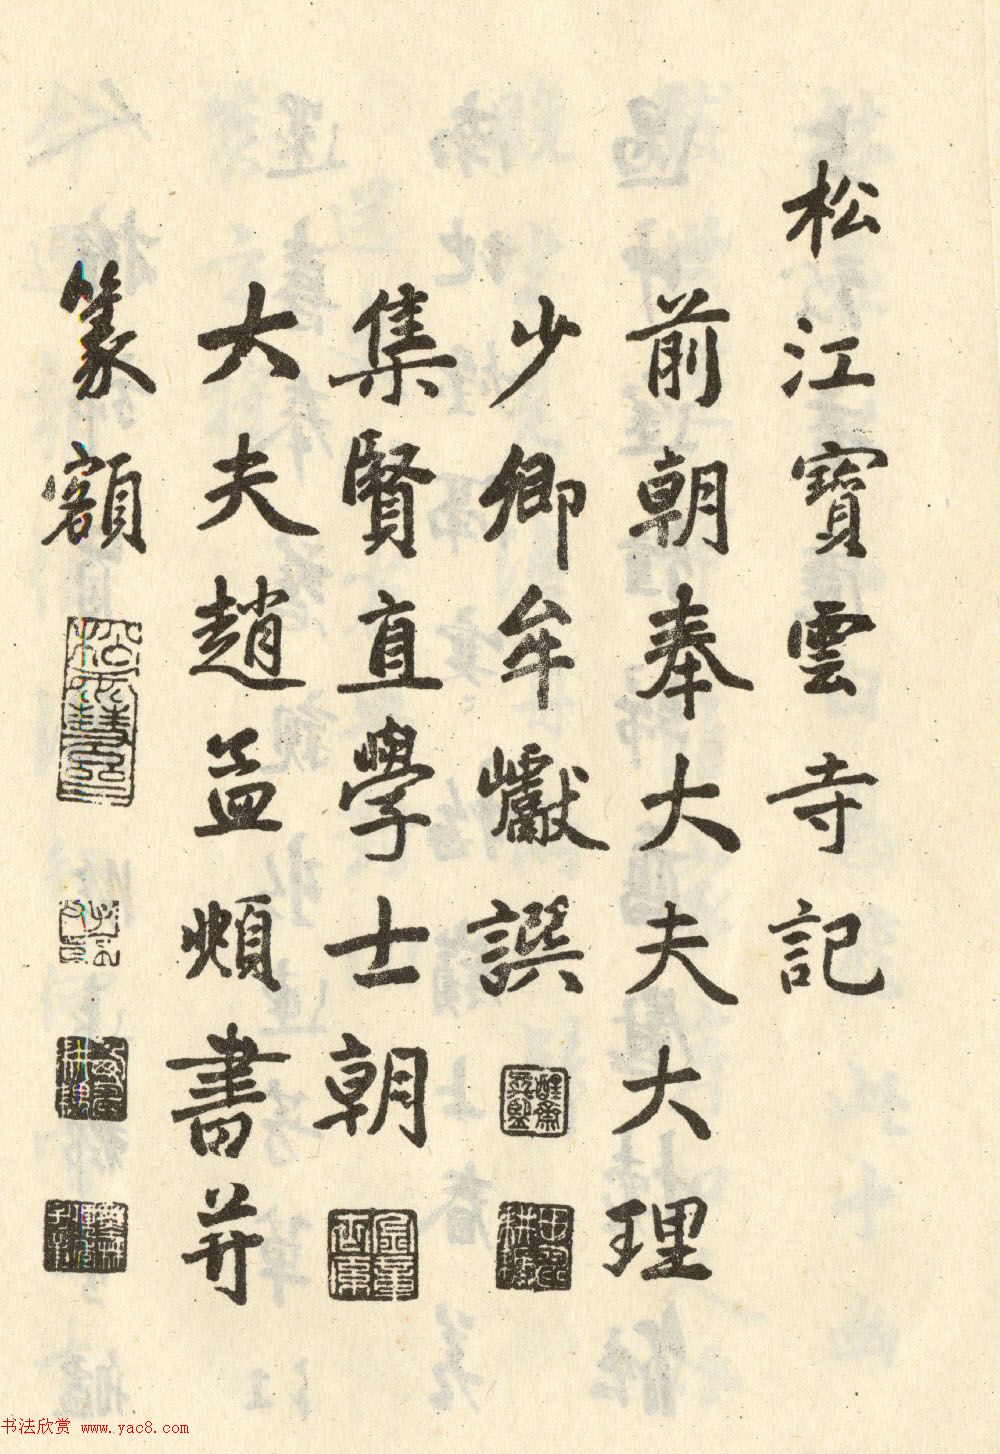 松江寶雲寺記
前朝奉大夫大理
少卿牟巘譔
集賢直學士朝
大夫趙孟頫書并
篆額
书法欣赏 www.yac8.com